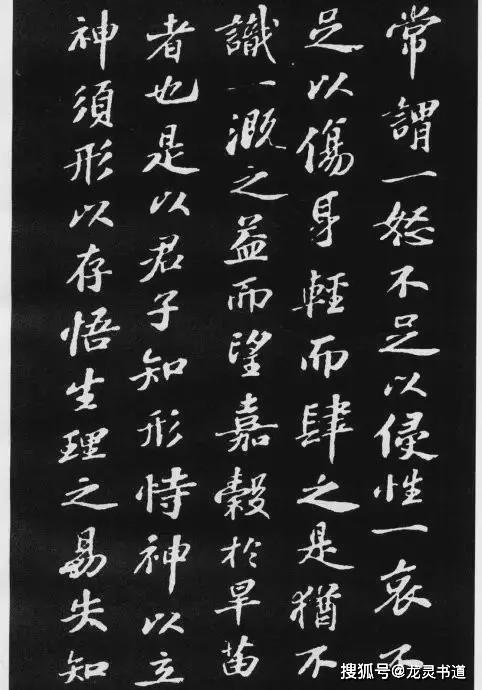 常謂一怒不足以侵性一哀不
足以傷身輕而肆之是猶不
識一溉之益而望嘉穀於旱苗
者也是以君子知形恃神以立
神須形以存悟生理之易失知
搜狐号@龙灵书道